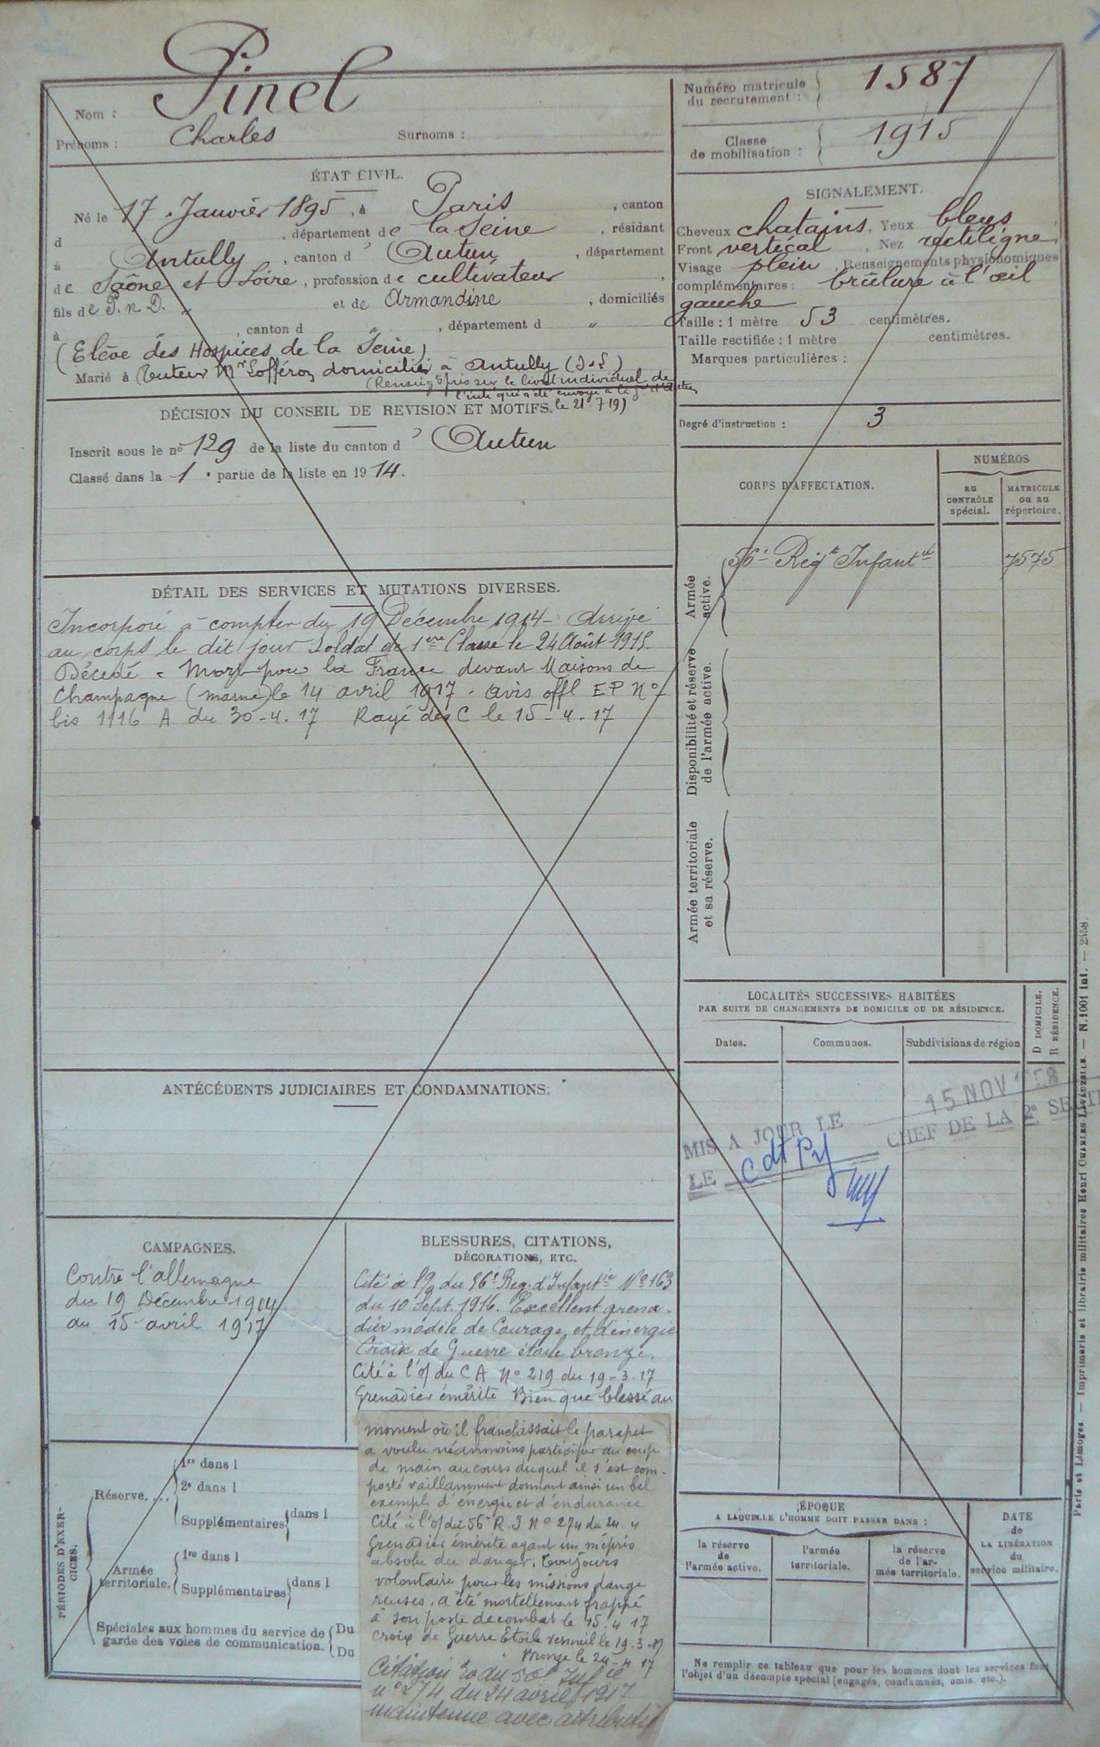 Nom : Pinel
Prénoms : Charles Surnoms :
Numéro matricule du recrutement : 1587
Classe de mobilisation : 1915
ÉTAT CIVIL.
Né le 17 Janvier 1895, à Paris, canton
d , département de la Seine, résidant
à Antully, canton d' Autun, département
de Saône et Loire, profession de cultivateur,
fils de P. n D. „ et de Armandine, domiciliés
à , canton d „ , département d „
(Elève des Hospices de la Seine)
Marié à (Tuteur Mr Lofféron domicilié à Antully (S &L)
(Renseigts pris sur le livret individuel de
l'inté qui a été envoyé à la gie d'Autun
le 21-7-19)
SIGNALEMENT.
Cheveux chatains, Yeux bleus,
Front vertical, Nez rectiligne,
Visage plein, Renseignements physionomiques
complémentaires : brûlure à l'œil
gauche
Taille : 1 mètre 53 centimètres.
Taille rectifiée : 1 mètre centimètres.
Marques particulières :
Degré d'instruction : 3
DÉCISION DU CONSEIL DE REVISION ET MOTIFS.
Inscrit sous le no 129 de la liste du canton d' Autun
Classé dans la 1e partie de la liste en 1914.
CORPS D'AFFECTATION.
NUMÉROS
AU CONTRÔLE spécial.
MATRICULE OU AU répertoire.
Armée active.
56e Régt Infantie 7575
Disponibilité et réserve de l'armée active.
Armée territoriale et sa réserve.
DÉTAIL DES SERVICES ET MUTATIONS DIVERSES.
Incorporé à compter du 19 Décembre 1914 - Arrivé
au corps le dit jour Soldat de 1ère Classe le 24 Août 1915.
Décédé = Mort pour la France devant Maisons de
Champagne (marne) le 14 avril 1917. avis offl EP No
bis 1116 A du 30-4-17 Rayé des C le 15-4-17
LOCALITÉS SUCCESSIVES HABITÉES
PAR SUITE DE CHANGEMENTS DE DOMICILE OU DE RÉSIDENCE.
Dates. Communes. Subdivisions de région
D DOMICILE.
R RÉSIDENCE.
MIS A JOUR LE 15 NOV
LE CHEF DE LA 2e
ANTÉCÉDENTS JUDICIAIRES ET CONDAMNATIONS.
CAMPAGNES.
Contre l'allemagne
du 19 Décembre 1914
au 15 avril 1917
BLESSURES, CITATIONS,
DÉCORATIONS, ETC.
Cité à l'o/ du 56e Reg. d'Infantie No 163
du 10 Sept. 1916. Excellent grena-
dier modèle de Courage et d'énergie
Croix de Guerre étoile bronze.
Cité à l'o/ du CA No 219 du 19-3-17
Grenadier émérite Bien que blessé au
moment où il franchissait le parapet
a voulu néanmoins participer au coup
de main au cours duquel il s'est com-
porté vaillamment donnant ainsi un bel
exemple d'énergie et d'endurance
Cité à l'o/ du 56e R.I No 274 du 24.4
Grenadier émérite ayant un mépris
absolu du danger. Toujours
volontaire pour les missions dange
reuses. a été mortellement frappé
à son poste de combat le 15-4 17
Croix de Guerre Etoile vermeil le 19-3-17
" Bronze le 24-4 17
Citation Ro du 56e Infie
n° 274 du 24 avril 1917
maintenue avec attribution
PÉRIODES D'EXERCICES.
Réserve....
1re dans l
2e dans l
Supplémentaires dans l
Armée territoriale.
1re dans l
Supplémentaires dans l
Spéciales aux hommes du service de garde des voies de communication. Du
Du
ÉPOQUE
A LAQUELLE L'HOMME DOIT PASSER DANS :
la réserve de l'armée active.
l'armée territoriale.
la réserve de l'armée territoriale.
DATE de LA LIBÉRATION du service militaire.
Ne remplir ce tableau que pour les hommes dont les services font
l'objet d'un décompte spécial (engagés, condamnés, omis, etc.).
Paris et Limoges. — Imprimerie et librairie militaires Henri CHARLES-LAVAUZELLE. — N. 1001 int. — 2558.